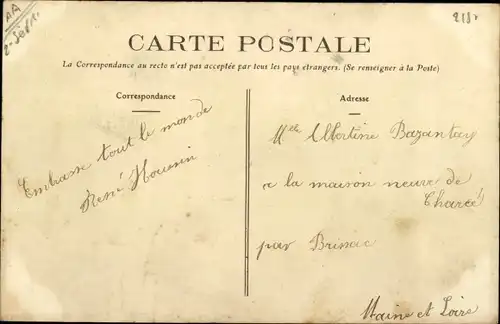 2187
CARTE POSTALE
La Correspondance au recto n'est pas acceptée par tous les pays étrangers. (Se renseigner à la Poste)
Correspondance
Embrasse tout le monde
René
Adresse
Melle Albertine Bazantay
a la maison neuve de
Charcé
par Brissac
Maine et Loire